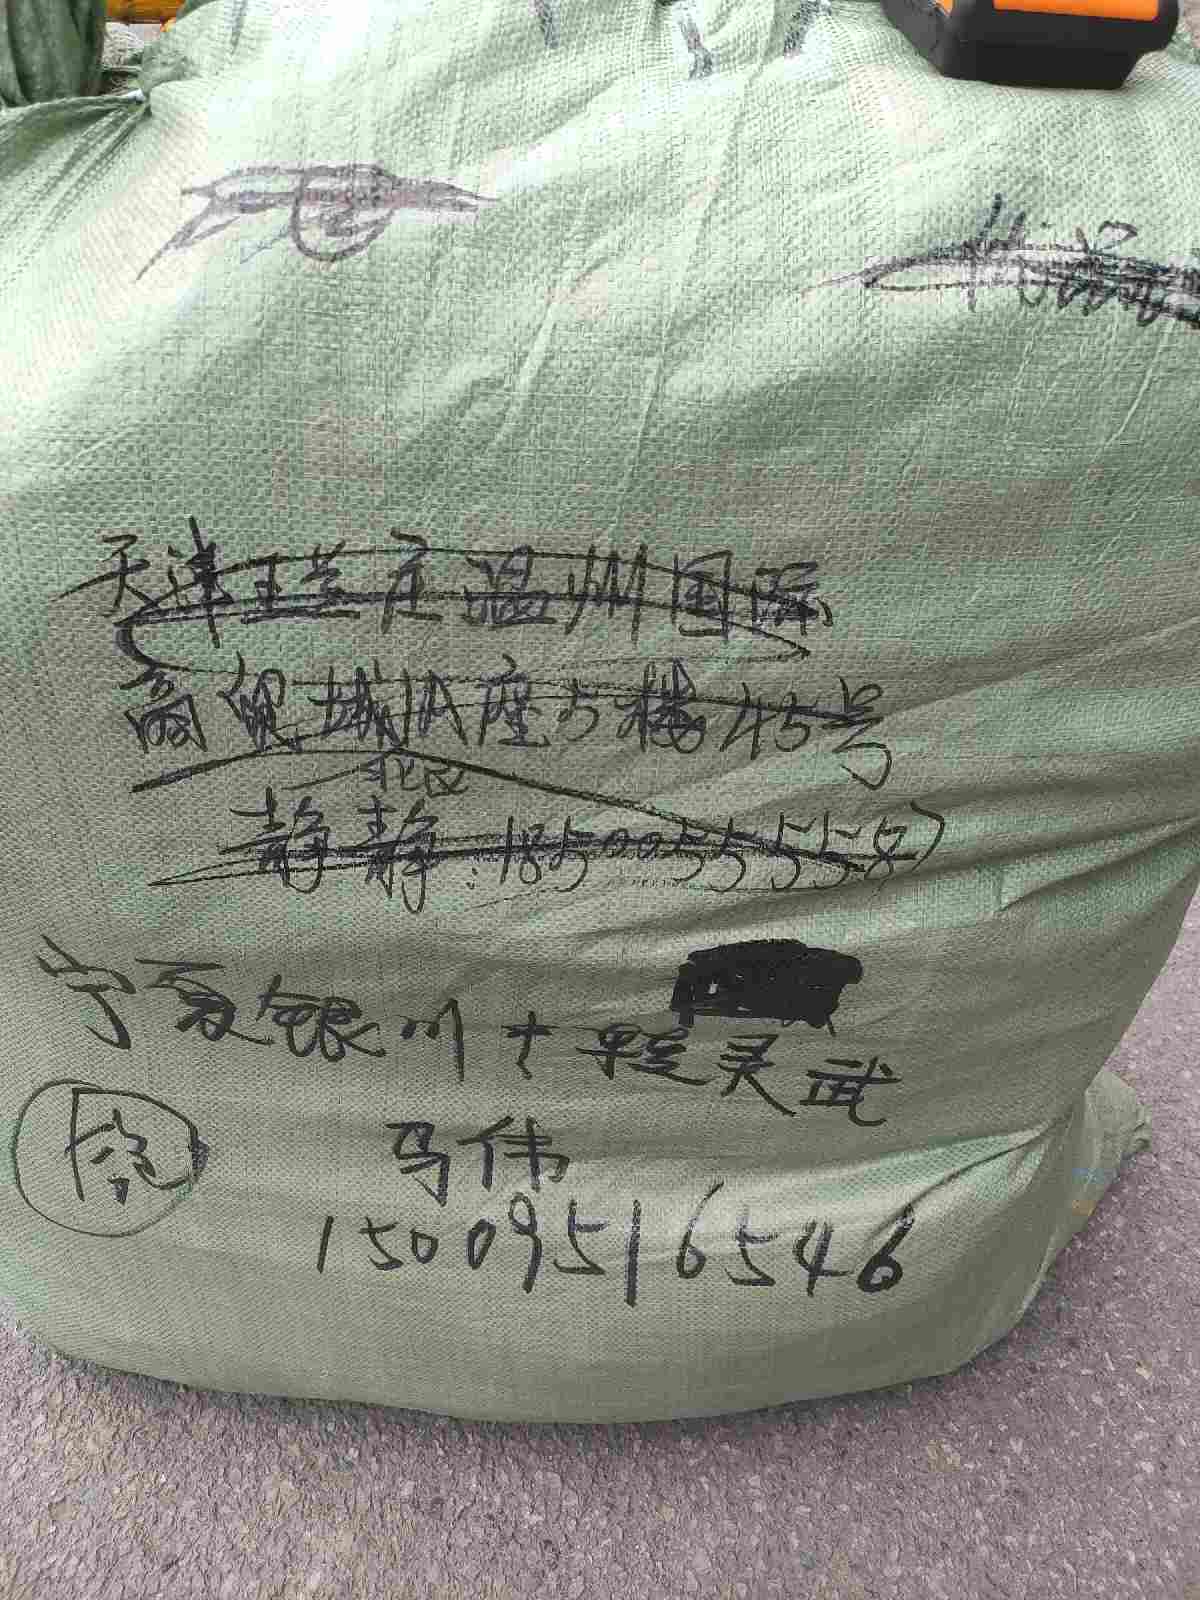 天津王兰庄温州国际
商贸城A座5楼45号
北区
静静:18500555587
宁夏银川十转灵武
马伟
15009516546